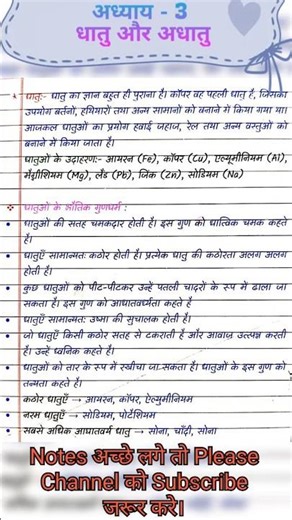 अध्याय - 3
धातु और अधातु
धातु:- धातु का ज्ञान बहुत ही पुराना है। कॉपर वह पहली धातु है, जिसका
उपयोग बर्तनों, हथियारों तथा अन्य सामानों को बनाने में किया गया था।
आजकल धातुओं का प्रयोग हवाई जहाज, रेल तथा अन्य वस्तुओं को
बनाने में किया जाता है।
धातुओं के उदाहरण:- आयरन (Fe), कॉपर (Cu), एल्युमीनियम (Al),
मैग्नीशियम (Mg), लैड (Pb), जिंक (Zn), सोडियम (Na)
धातुओं के भौतिक गुणधर्म :
धातुओं की सतह चमकदार होती है। इस गुण को धात्विक चमक कहते
हैं।
धातुएँ सामान्यतः कठोर होती है। प्रत्येक धातु की कठोरता अलग अलग
होती है।
कुछ धातुओं को पीट-पीटकर उन्हें पतली चादरों के रूप में ढाला जा
सकता है। इस गुण को आघातवर्ध्यता कहते हैं
धातुएँ सामान्यतः उष्मा की सुचालक होती है।
जो धातुएँ किसी कठोर सतह से टकराती है और आवाज़ उत्पन्न करती
है। उन्हें ध्वनिक कहते है।
धातुओं को तार के रूप में खींचा जा सकता है। धातुओं के इस गुण को
तन्यता कहते हैं।
कठोर धातुएँ → आयरन, कॉपर, ऐल्युमीनियम
नरम धातुएँ → सोडियम, पोटैशियम
सबसे अधिक आघातवर्ध्य धातु → सोना, चाँदी, सोना
Notes अच्छे लगे तो Please
Channel को Subscribe
जरूर करे।